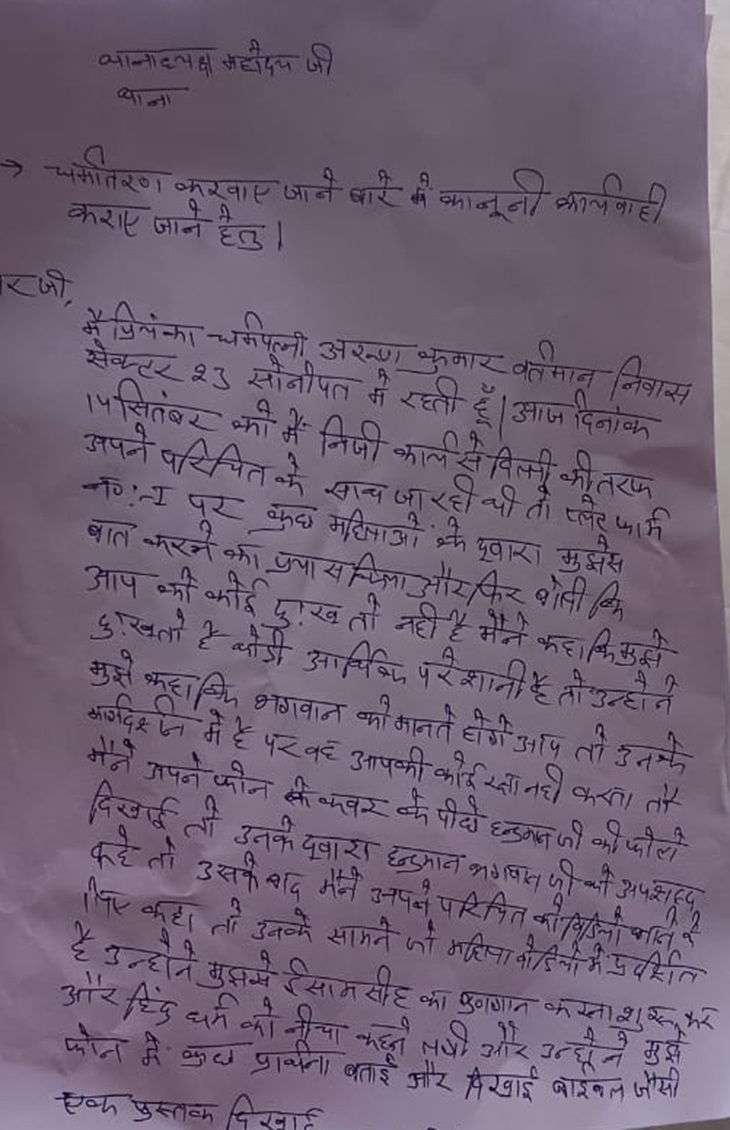 थानाध्यक्ष महोदय जी
थाना
→ धर्मांतरण करवाए जाने बारे में कानूनी कार्यवाही
कराए जाने हेतु।
र जी,
मै प्रियंका धर्मपत्नी अरूण कुमार वर्तमान निवास
सेक्टर 23 सोनीपत मे रहती हूँ। आज दिनांक
14 सितंबर को मैं निजी कार्य से दिल्ली की तरफ
अपने परिचित के साथ जा रही थी तो प्लेट फार्म
नं॰ 1 पर कुछ महिलाओं के द्वारा मुझसे
बात करने का प्रयास किया और फिर बोली कि
आप को कोई दुःख तो नही है मैने कहा कि मुझे
दुःख तो है थोडी आर्थिक परेशानी है तो उन्होने
मुझे कहा कि भगवान को मानते होगे आप तो उनके
मार्गदर्शन मे है पर वह आपकी कोई रक्षा नही करता तो
मैने अपने फोन के कवर के पीछे हनुमान जी की फोटो
दिखाई तो उनके द्वारा हनुमान भगवान जी को अपशब्द
कहे तो उसके बाद मैने अपने परिचित को विडियो बनाने के
लिए कहा तो उनके सामने जो महिला वीडियो मे प्रदर्शित
है उन्होने मुझसे ईसा मसीह का गुणगान करना शुरू कर
और हिंदू धर्म को नीचा कहने लगी और उन्होने मुझे
फोन में कुछ प्रार्थना बताई और दिखाई बाइबल जैसी
एक पुस्तक दिखाई